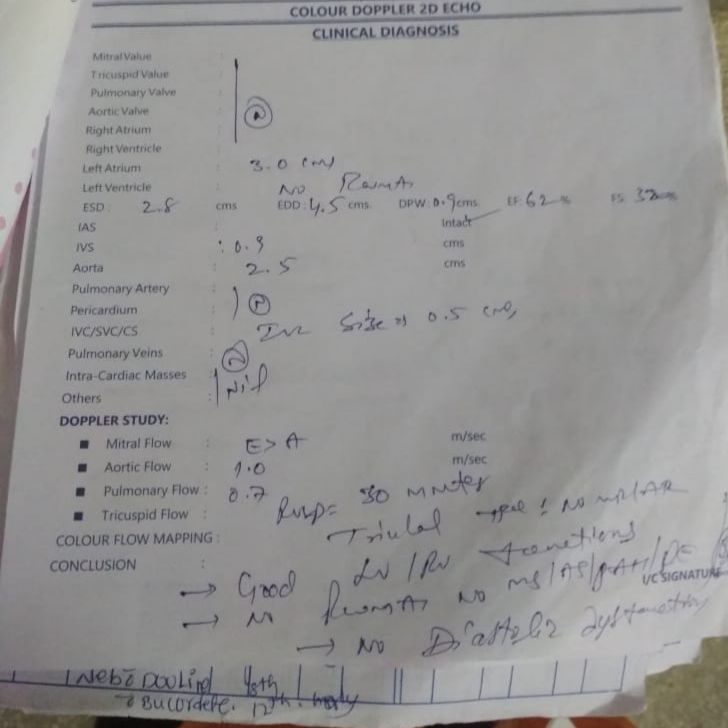 COLOUR DOPPLER 2D ECHO
CLINICAL DIAGNOSIS
Mitral Value :
Tricuspid Value :
Pulmonary Valve :
Aortic Valve : N
Right Atrium :
Right Ventricle :
Left Atrium : 3.0 cms
Left Ventricle : No RWMA
ESD : 2.8 cms EDD : 4.5 cms. DPW : 0.9 cms. EF 62 % FS 32 %
IAS : Intact
IVS : 0.9 cms
Aorta : 2.5 cms
Pulmonary Artery :
Pericardium : N
IVC/SVC/CS : IVC Size is 0.5 cms
Pulmonary Veins : N
Intra-Cardiac Masses :
Others : Nil
DOPPLER STUDY:
■ Mitral Flow : E > A m/sec
■ Aortic Flow : 1.0 m/sec
■ Pulmonary Flow : 0.7
■ Tricuspid Flow : RVSP = 30 mmHg
COLOUR FLOW MAPPING : Trivial No MR/AR
CONCLUSION :
→ Good LV/RV functions
→ No RWMA, No MS/AS/PAH/PE
I/C SIGNATURE
→ No Diastolic dysfunction
Neb c Duolin 48th
Budcort 12th